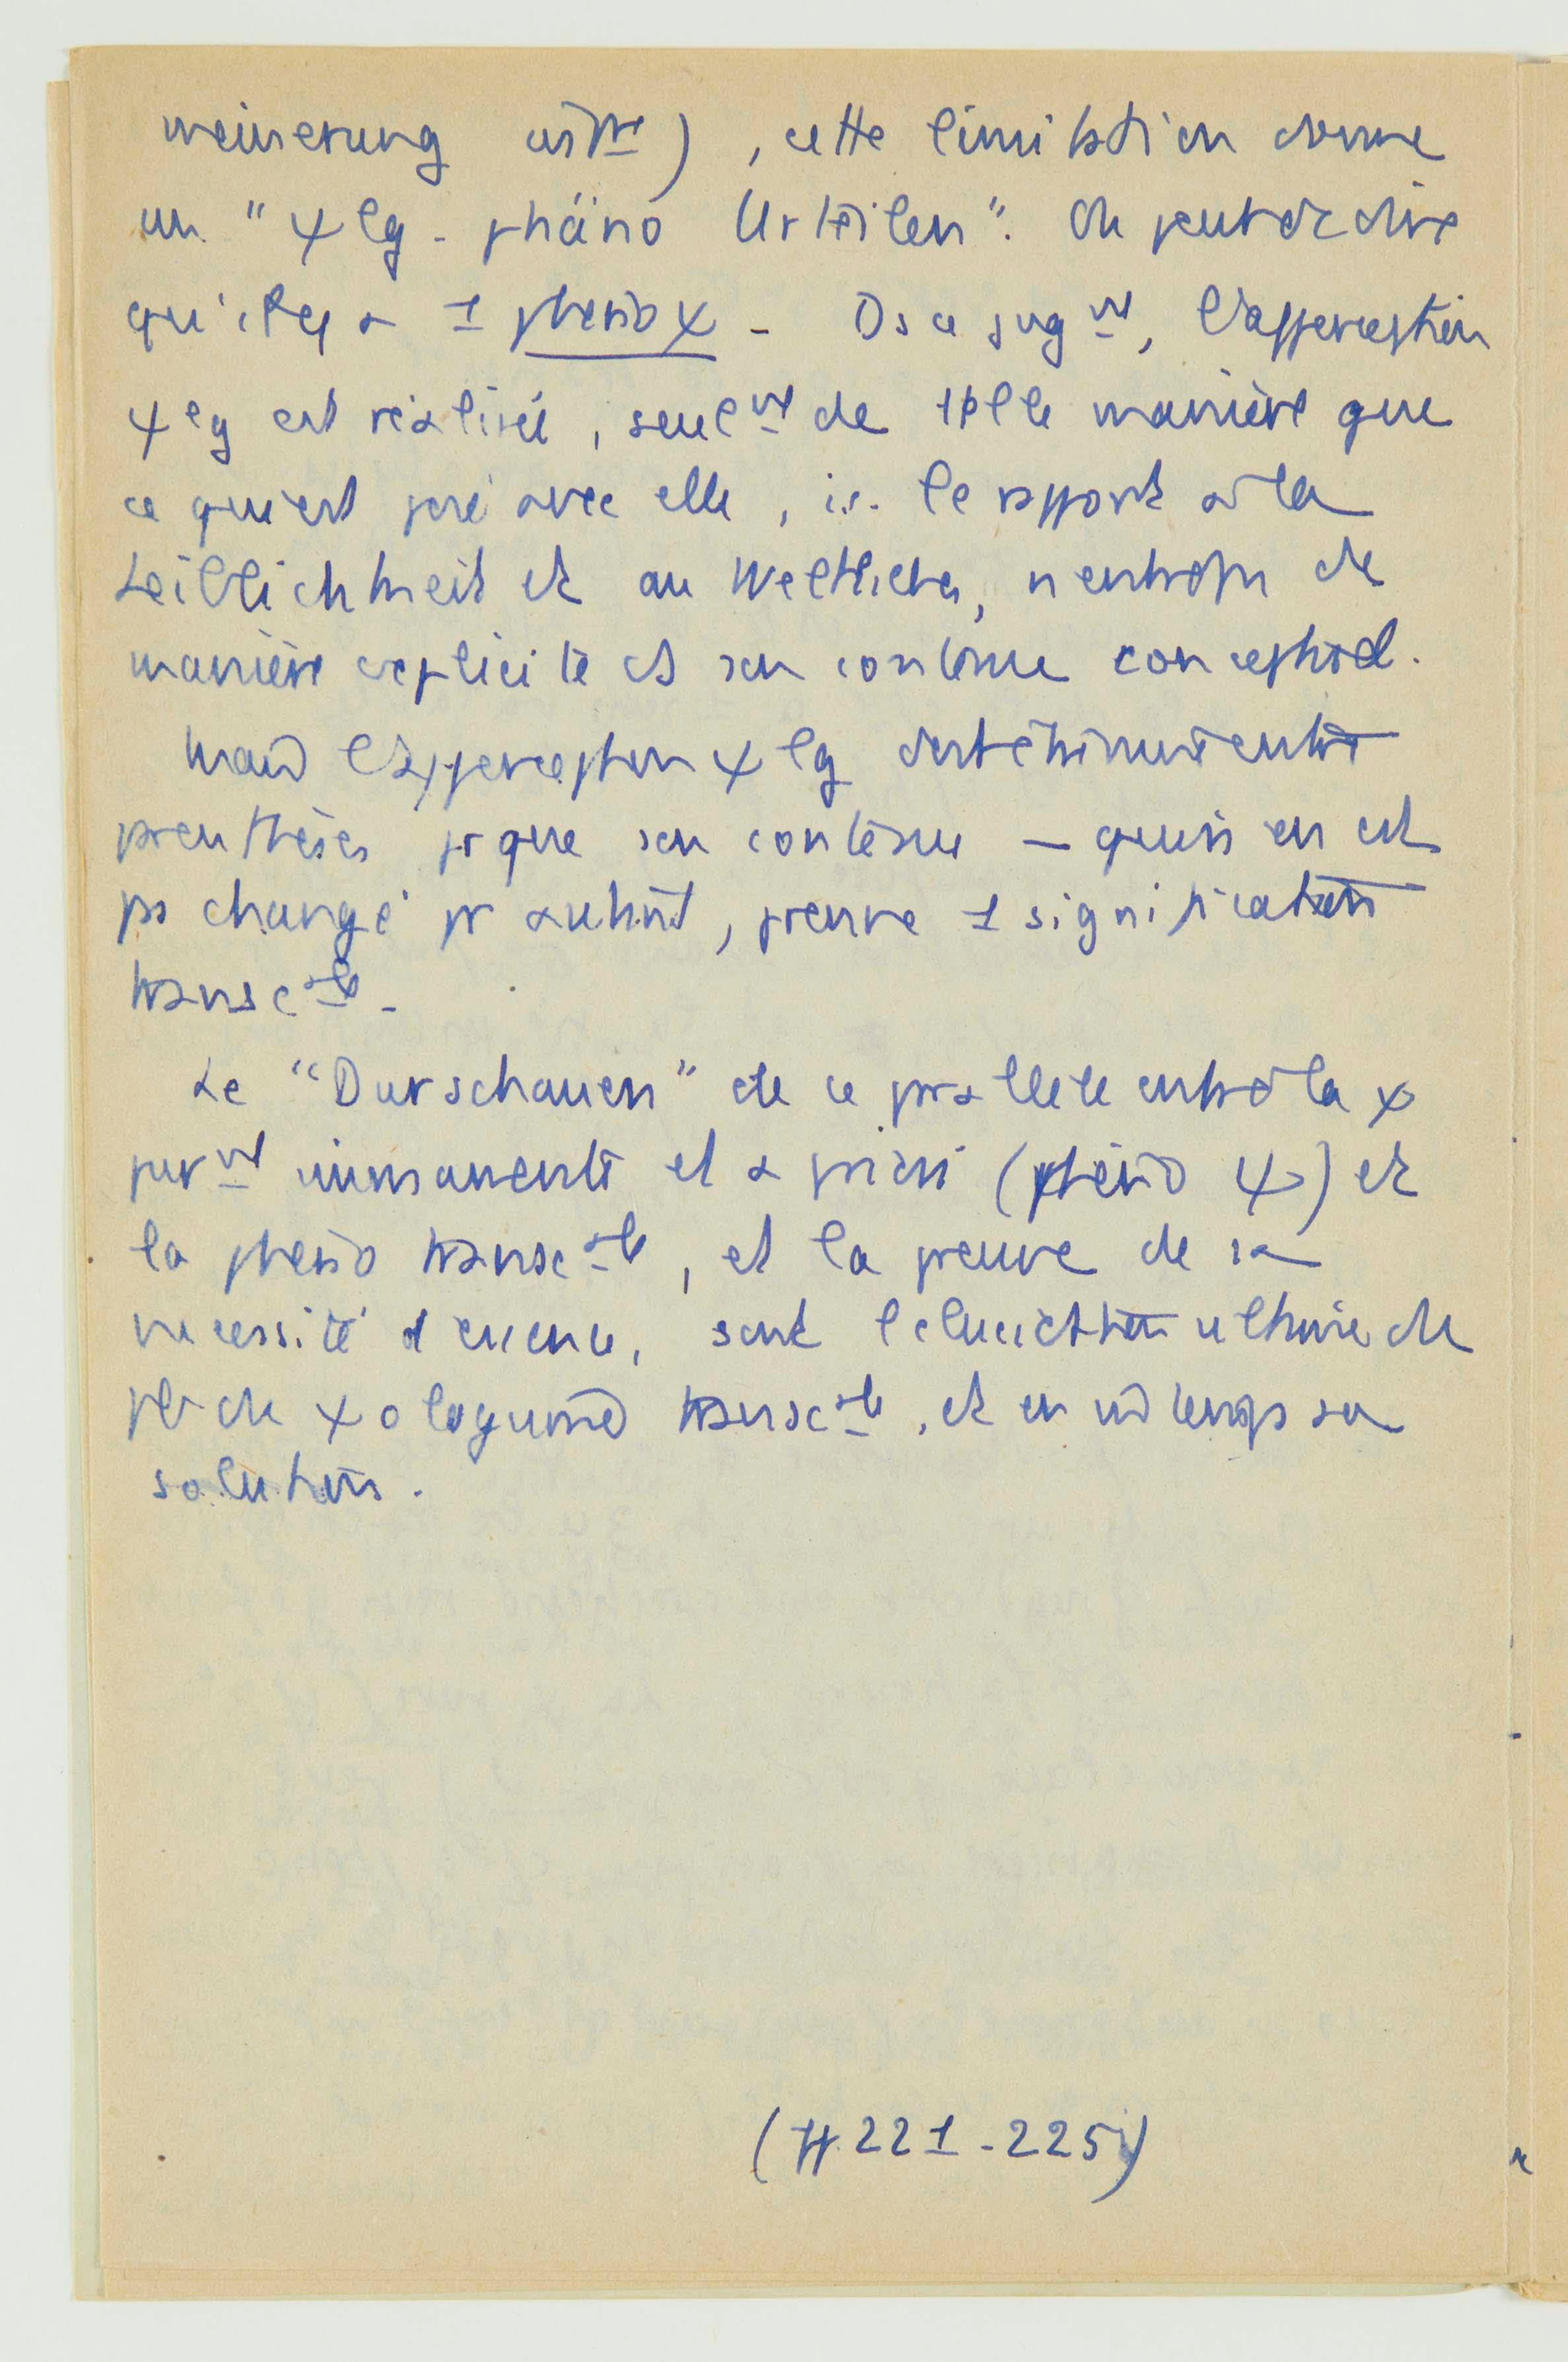 meinerung , cette limitation donne
un "ψlg - phäno Urteilen". On peut dc dire
qu'il y a 1 phéno ψ - Ds ce jugnt, l'apperception
ψlg est réalisée, seulnt de telle manière que
ce qui est posé avec elle, i.e. le rapport à la
Leiblichkeit et au Weltliches, n'entre ps de
manière explicite ds son contenu conceptuel.
Mais l'apperception ψlg doit être mise entre
parenthèses pr que son contenu — qui n'en est
ps changé pr autant, prenne 1 signification
transcale -
Le "Durschauen" de ce parallèle entre la ψ
purnt immanente et a priori (phéno ψ) et
la phéno transcale, et la preuve de sa
nécessité d'essence, sont l'élucidation ultime du
pb du ψologisme transcal, et en m̂ temps sa
solution.
(pp. 221-225)